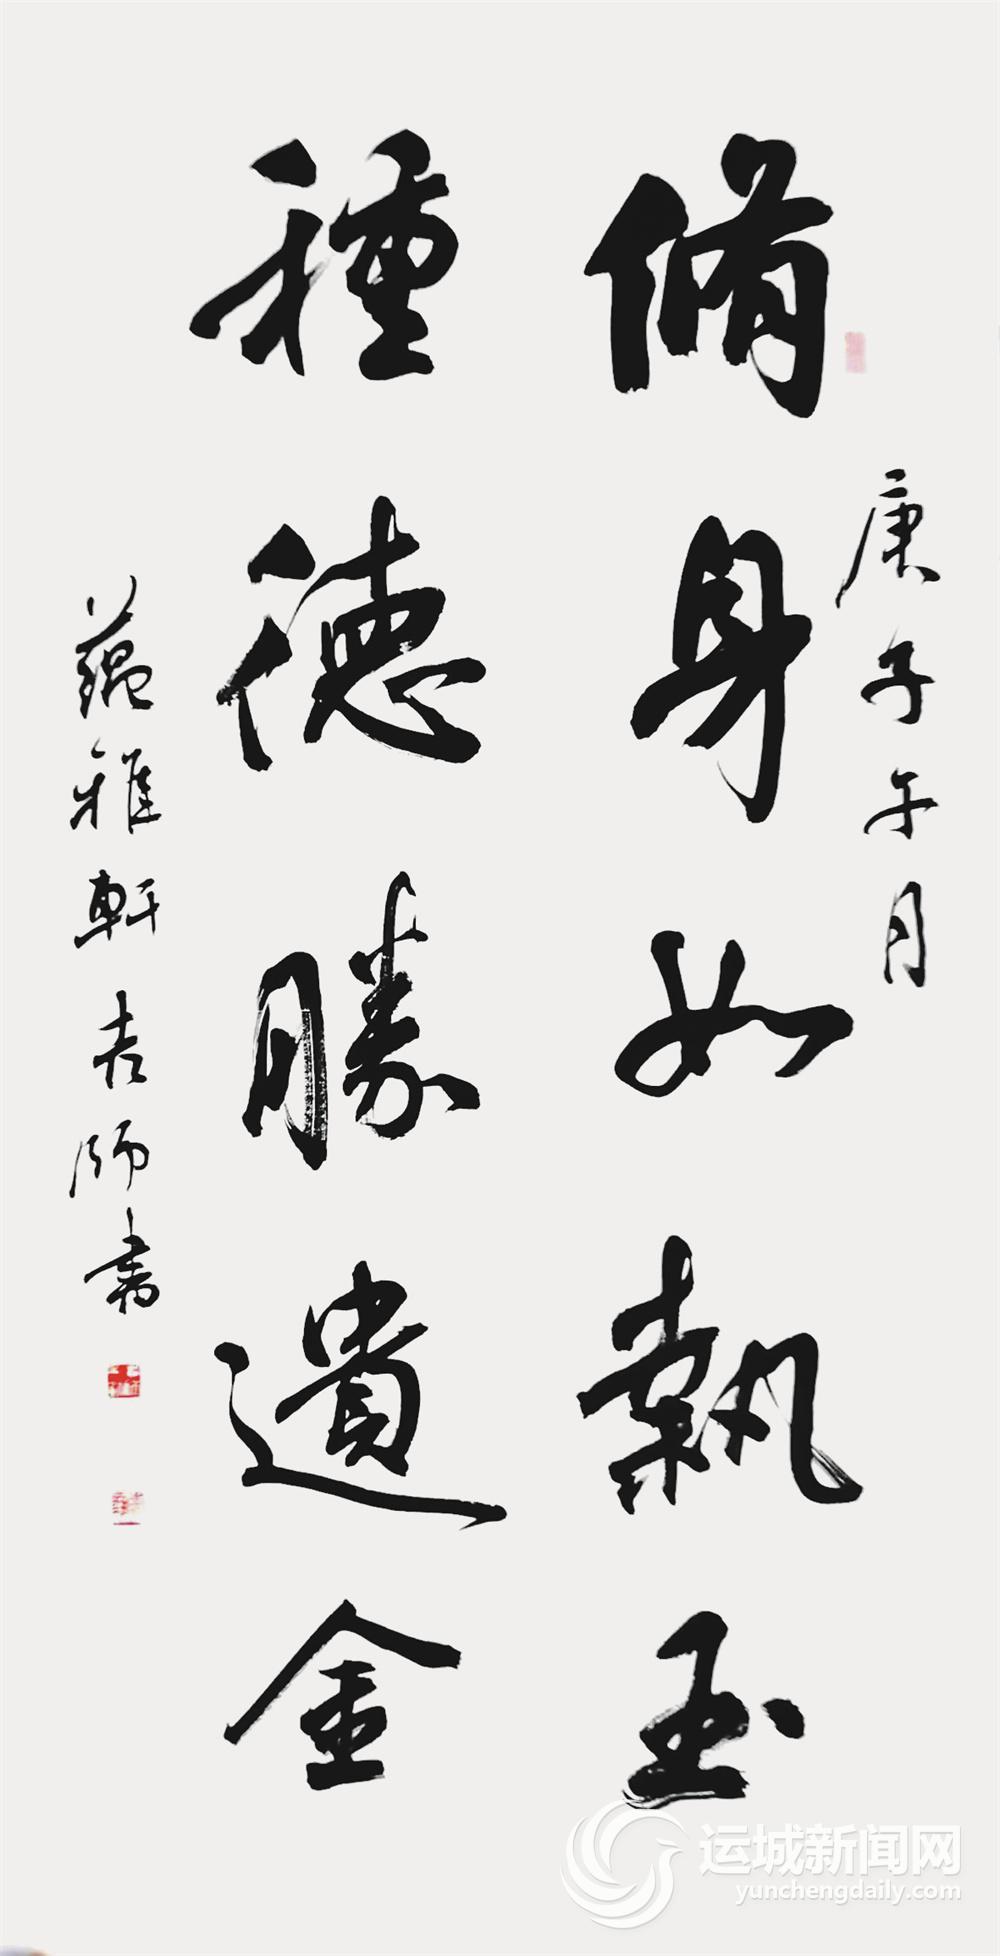 庚子午月
脩身如執玉
種德勝遺金
蘊雅軒 吉師書
运城新闻网
yunchengdaily.com